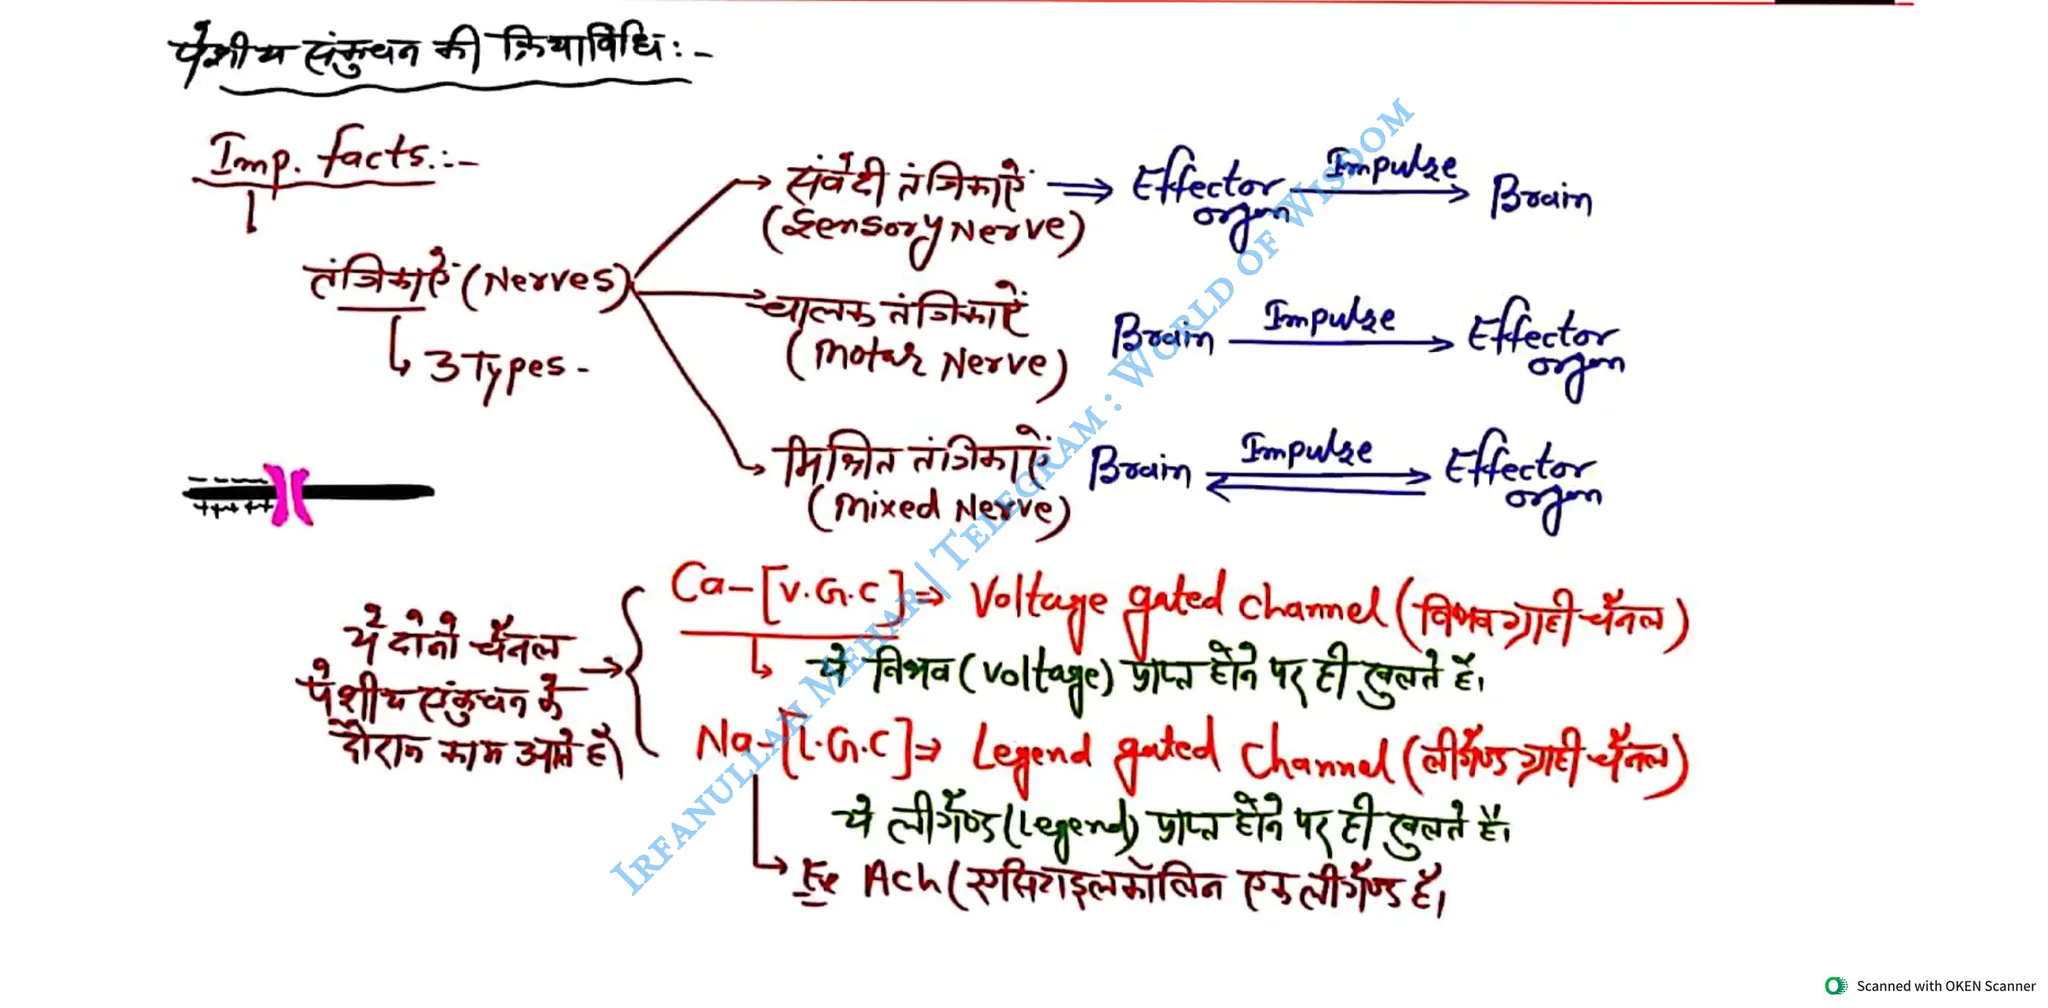 पेशीय संकुचन की क्रियाविधि:-
Imp. facts.:-
तंत्रिकाऐं (Nerves)
3 Types -
संवेदी तंत्रिकाऐं ⇒ Effector organ Impulse → Brain
(Sensory Nerve)
चालक तंत्रिकाऐं
(Motar Nerve)
Brain Impulse → Effector organ
मिश्रित तंत्रिकाऐं
(Mixed Nerve)
Brain Impulse Effector organ
- - - - -
+++++
ये दोनो चैनल
पेशीय संकुचन के
दौरान काम आते है।
Ca-[V.G.C] ⇒ Voltage gated channel (विभव ग्राही चैनल)
ये विभव (voltage) प्राप्त होने पर ही खुलते है।
Na-[L.G.C] ⇒ Legend gated channel (लीगैण्ड ग्राही चैनल)
ये लीगैण्ड (Legend) प्राप्त होने पर ही खुलते है।
Ex Ach (एसिटाइलकॉलिन एक लीगैण्ड है।
IRFANULLAH MEHAR | TELEGRAM : WORLD OF WISDOM
Scanned with OKEN Scanner